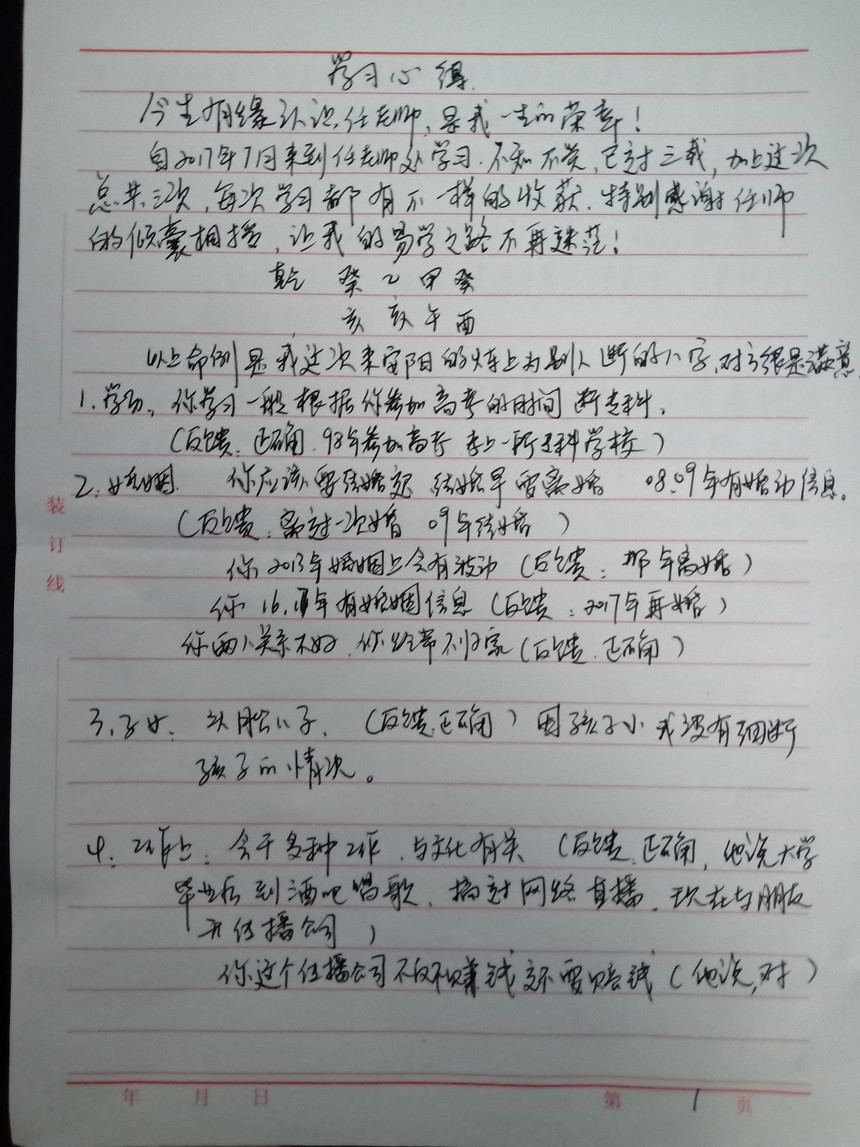 学习心得.
今生有缘认识任老师,是我一生的荣幸!
自2017年7月来到任老师处学习.不知不觉,已过三载,加上这次
总共三次,每次学习都有不一样的收获.特别感谢任师
的倾囊相授,让我的易学之路不再迷茫!
乾 癸 乙 甲 癸
亥 亥 午 酉
以上命例是我这次来安阳的火车上为别人断的八字,对方很是满意.
1.学历. 你学习一般根据你参加高考的时间断专科.
(反馈:正确.93年参加高考 考上一所专科学校)
2.婚姻. 你应该要结婚 结婚早要离婚 08.09年有婚动信息.
(反馈:离过一次婚 09年结婚 )
你2013年婚姻上会有波动(反馈:那年离婚)
你16.17年有婚姻信息(反馈:2017年再婚)
你两个关系不好.你经常不归家(反馈.正确)
装
订
线
3.子女. 头胎儿子. (反馈.正确)因孩子小我没有细断
孩子的情况。
4.工作上:会干多种工作.与文化有关 (反馈.正确,他说大学
毕业后到酒吧唱歌.搞过网络直播.现在与朋友
开传播公司)
你这个传播公司不仅不赚钱 还要赔钱(他说,对)
年 月 日
第 1 页